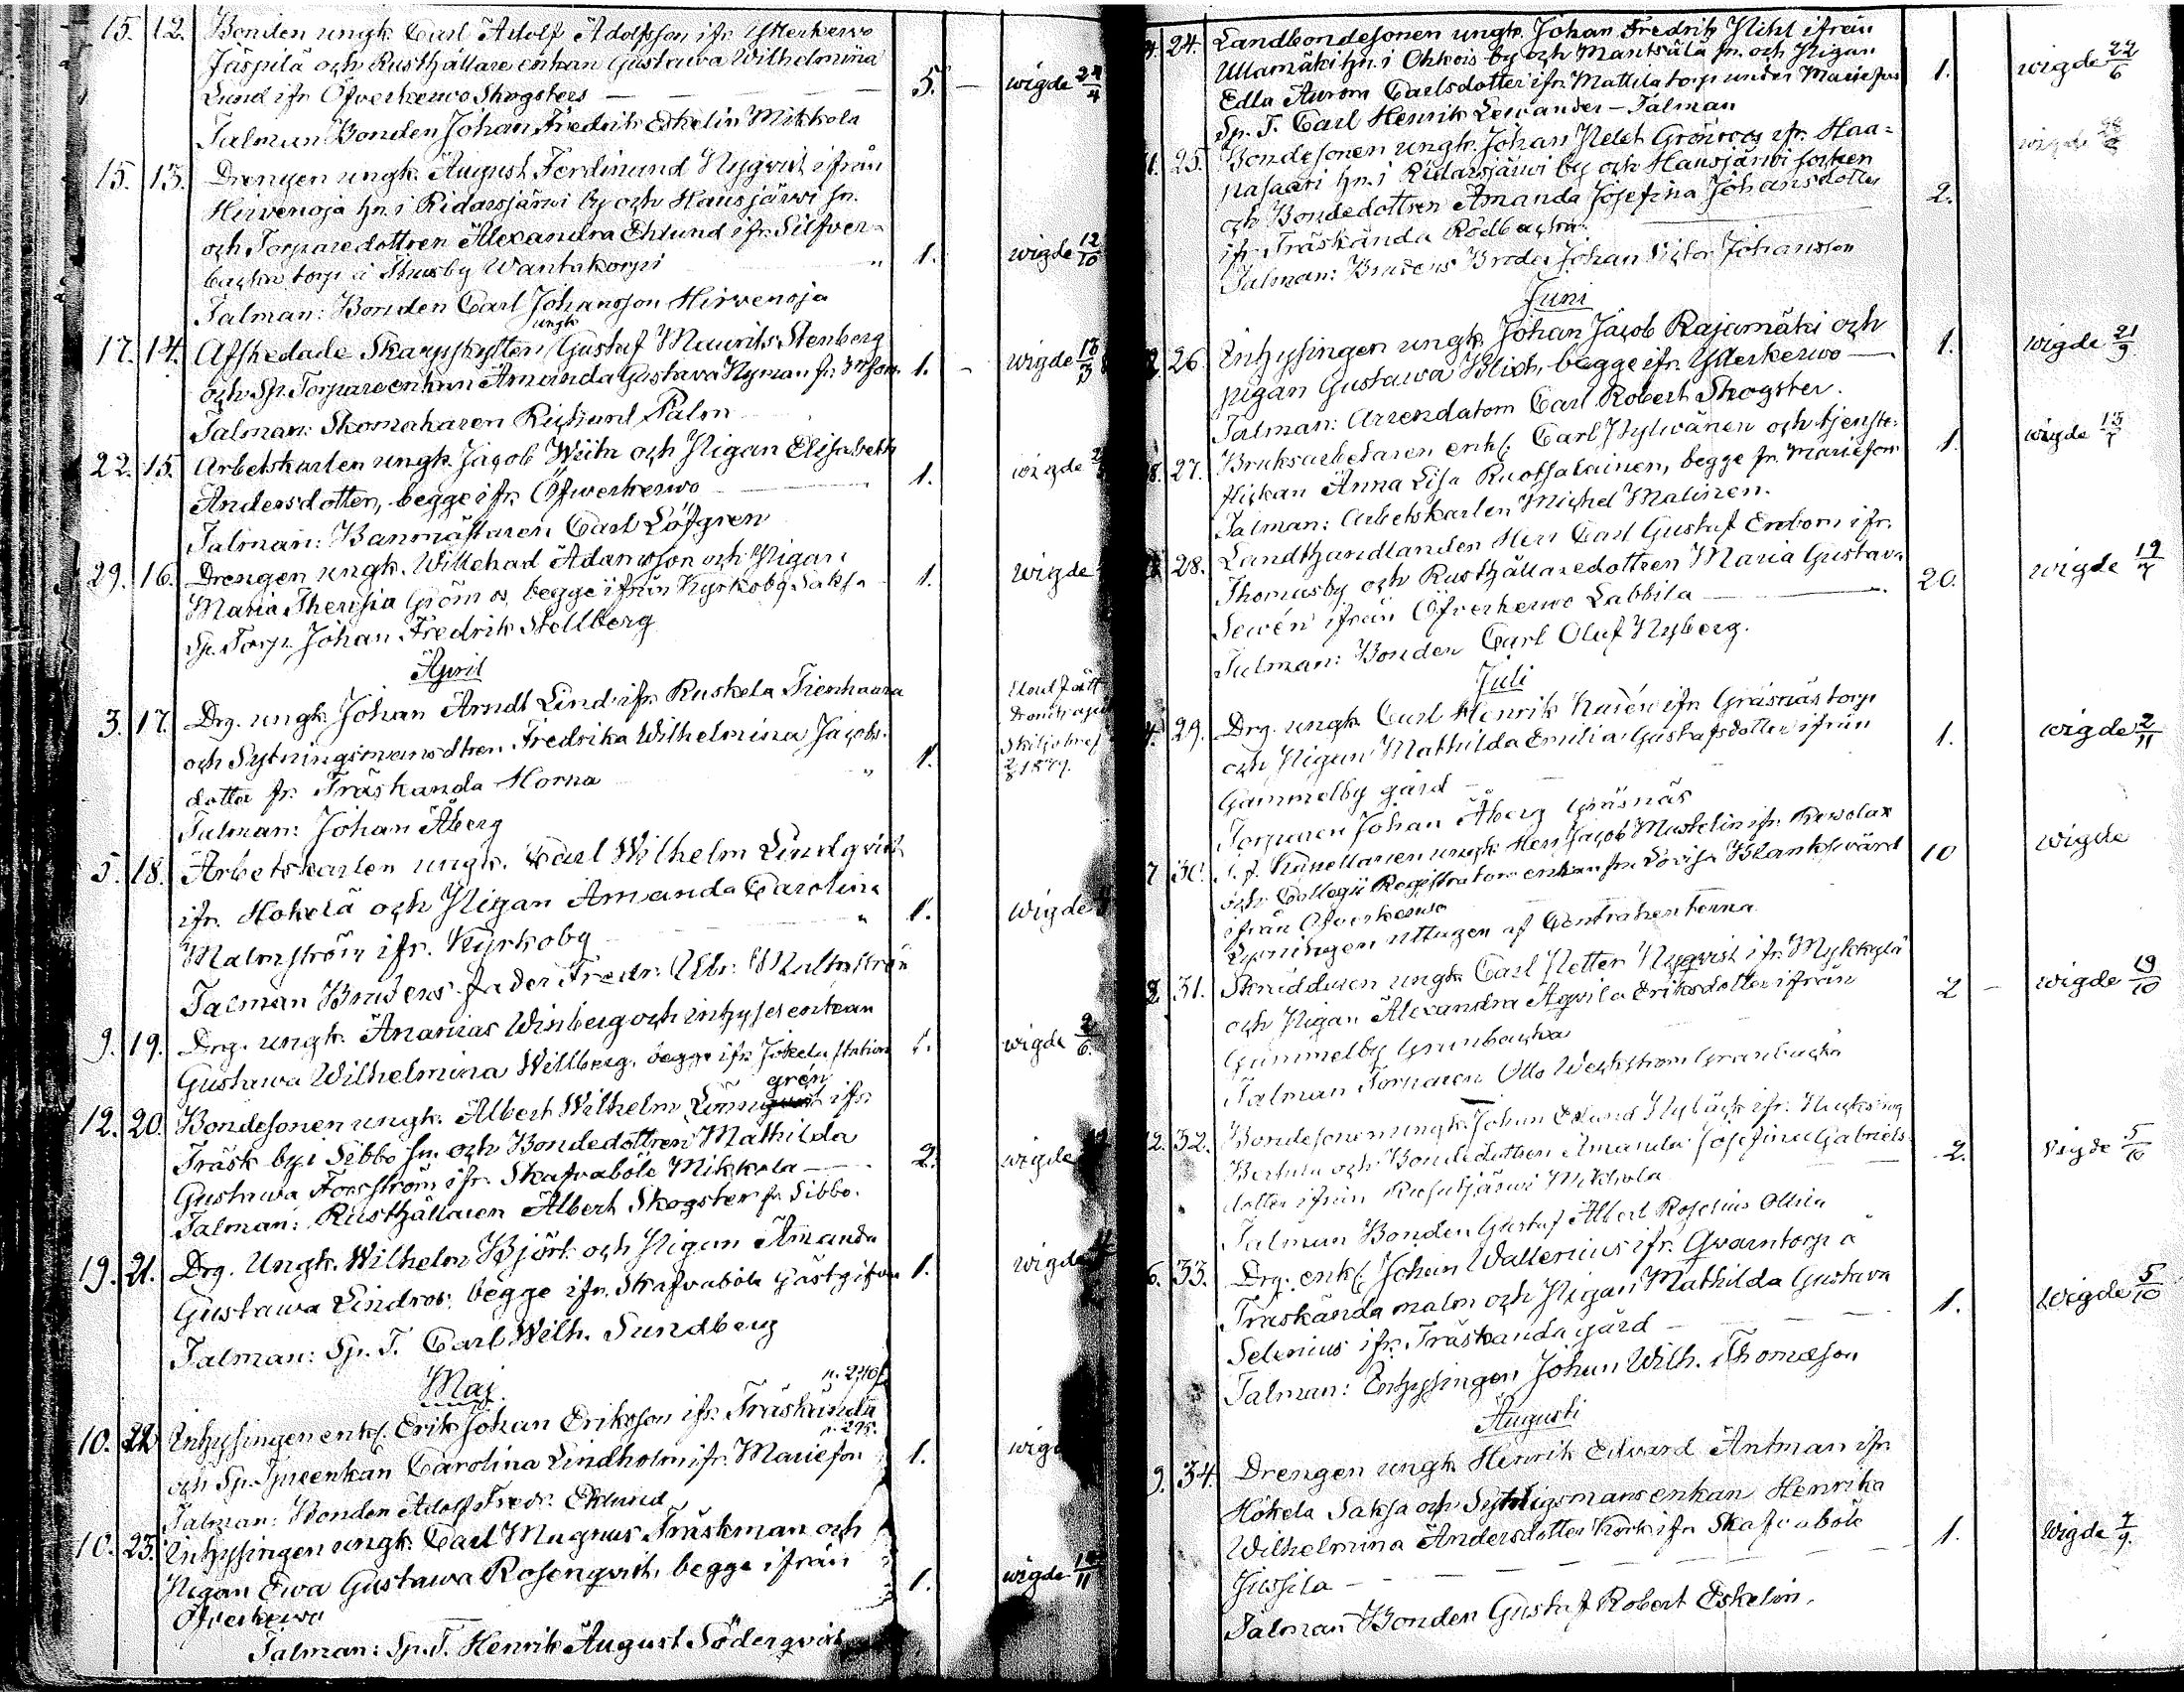 15. 12. Bonden ungk. Carl Adolf Adolfsson ifr. Ytterkerwo
Jäspilä och Rusthållare enkan Gustawa Wilhelmina
Lund ifr. Öfverkerwo Skogsters — 5. — wigde 24/4
Talman Bonden Johan Fredrik Eskelin Mikkola
15. 13. Drengen ungk. August Ferdinand Nyqvist ifrån
Hirvenoja hn. i Ridasjärwi by och Hausjärwi sn.
och Torparedottren Alexandra Eklund ifr. Silfver-
backa torp i Thusby Wantakorpi " 1. wigde 12/10
Talman: Bonden Carl Johansson Hirvenoja
17. 14. Afskedade Skarpskytten ungk. Gustaf Maurits Stenberg
och Sp. Torpareenkan Amanda Gustava Nyman fr. 1. - wigde
Talman: Skomakaren Rickard Palm
22. 15. Arbetskarlen ungk. Jacob Wiita och Pigan Elisabeth
Andersdotter, begge ifr. Öfwerkerwo — 1. wigde
Talman: Banmästaren Carl Löfgren
29. 16. Drengen ungk. Willehad Adamsson och Pigan
Maria Theresia Gröm begge ifrån Kyrkoby Saksa 1. wigde
Sp. Torp. Johan Fredrik Stellberg
April
3. 17. Drg. ungk. Johan Arndt Lind ifr. Ruskela Tienhaara
och Sytningsmansdtren Fredrika Wilhelmina Jacobs-
dotter fr. Träskanda Horna " 1. 1879.
Talman: Johan Åberg
5. 18. Arbetskarlen ungk. Carl Wilhelm Lindqvist
ifr. Hokelä och Pigan Amanda Carolina
Malmström ifr. Kyrkoby " 1. wigde
Talman Brudens fader Fredr. Malmström
9. 19. Drg. ungk. Ananias Winberg och inhyses enkan
Gustawa Wilhelmina Willberg, begge ifr. Jokela station 1. wigde 2/6
12. 20. Bondesonen ungk. Albert Wilhelm Lönngrén ifr.
Träsk by i Sibbo sn. och Bondedottren Mathilda
Gustawa Forsström ifr. Skafvaböle Mikkola — 2. wigde
Talman: Rusthållaren Albert Skogster fr. Sibbo.
19. 21. Drg. Ungk. Wilhelm Björk och Pigan Amanda
Gustawa Lindroos, begge ifr. Skafvaböle Gästgifvar 1. wigde
Talman: Sp. T. Carl Wilh. Sundberg
Maj.
10. 22 Inhysingen enkl. Erik Johan Eriksson ifr. Träskända
och Sp. Tpreenkan Carolina Lindholm ifr. Mariefor 1.
Talman: Bonden Adolf Fredr. Eklund
10. 23. Inhysingen ungk. Carl Magnus Träskman och
Pigan Ewa Gustawa Rosenqvist, begge ifrån
Öfverkerwo 1. wigde
Talman: Sp. T. Henrik August Söderqvist
24. Landbondesonen ungk. Johan Fredrik Pihl ifrån
Ullamäki hn. i Ohkois by och Mäntsälä sn. och Pigan
Edla Aurora Carlsdotter ifr. Mattila torp under Mariefors 1. wigde 22/6
Sp. T. Carl Henrik Lewander — Talman
25. Bondesonen ungk. Johan Petet Grönroos ifr. Haa-
pasaari hn. i Ridasjärwi by och Hausjärwi socken
och Bondedottren Amanda Josefina Johansdotter 2.
ifr. Träskända Rödbacka
Talman: Brudens Broder Johan Victor Johansson
Juni
26. Inhysingen ungk. Johan Jacob Rajamäki och
pigan Gustawa Blick, begge ifr. Ytterkerwo — 1. wigde 21/9
Talman: Arrendatorn Carl Robert Skogster.
27. Bruksarbetaren enkl. Carl Pylwänen och tjenste-
flickan Anna Lisa Ruotsalainen, begge fr. Mariefors 1. wigde
Talman: Arbetskarlen Michel Malinen.
28. Landthandlanden Herr Carl Gustaf Enbom ifr.
Thomasby och Rusthållaredottren Maria Gustava
Sewén ifrån Öfverkerwo Labbila — 20. wigde 19/7
Talman: Bonden Carl Oluf Nyberg.
Juli
29. Drg. ungk. Carl Henrik Kaién ifr. Gräsnäs torp
och Pigan Mathilda Emilia Gustafsdotter ifrån
Gammelby gård — 1. wigde 2/11
Torparen Johan Åberg Gräsnäs
7 30. Herr Jacob Mastelin ifr. Rewolax
och Collegii Registrators enkan fru Lovisa Blankswärd 10 wigde
ifrån Öfverkerwo
Lysningen uttagen af Contrahenterna
31. Skräddaren ungk. Carl Petter Nyqvist ifr. Mykkylä
och Pigan Alexandra Aqvila Eriksdotter ifrån 2 — wigde 19/10
Gammelby Granbacka
Talman Torparen Otto Weckström Granbacka
12. 32. Bondesonen ungk. Johan Edvard Nybäck ifr.
och Bondedottren Amanda Josefina Gabriels- 2. wigde 5/10
dotter ifrån Rusutjärwi Mikkola
Talman Bonden Gustaf Albert Roselius Ollila
6. 33. Drg. enkl. Johan Wallenius ifr. Qvarntorp å
Träskända malm och Pigan Mathilda Gustava
Selenius ifr. Träskanda gård — 1. wigde 5/10
Talman: Inhysingen Johan Wilh. Thomasson
Augusti
9. 34. Drengen ungk. Henrik Edvard Antman ifr.
Hökela Saksa och Sytnigsmans enkan Henrika
Wilhelmina Andersdotter Kork ifr. Skafvaböle 1. wigde 7/9.
Jussila —
Talman Bonden Gustaf Robert Eskelin.